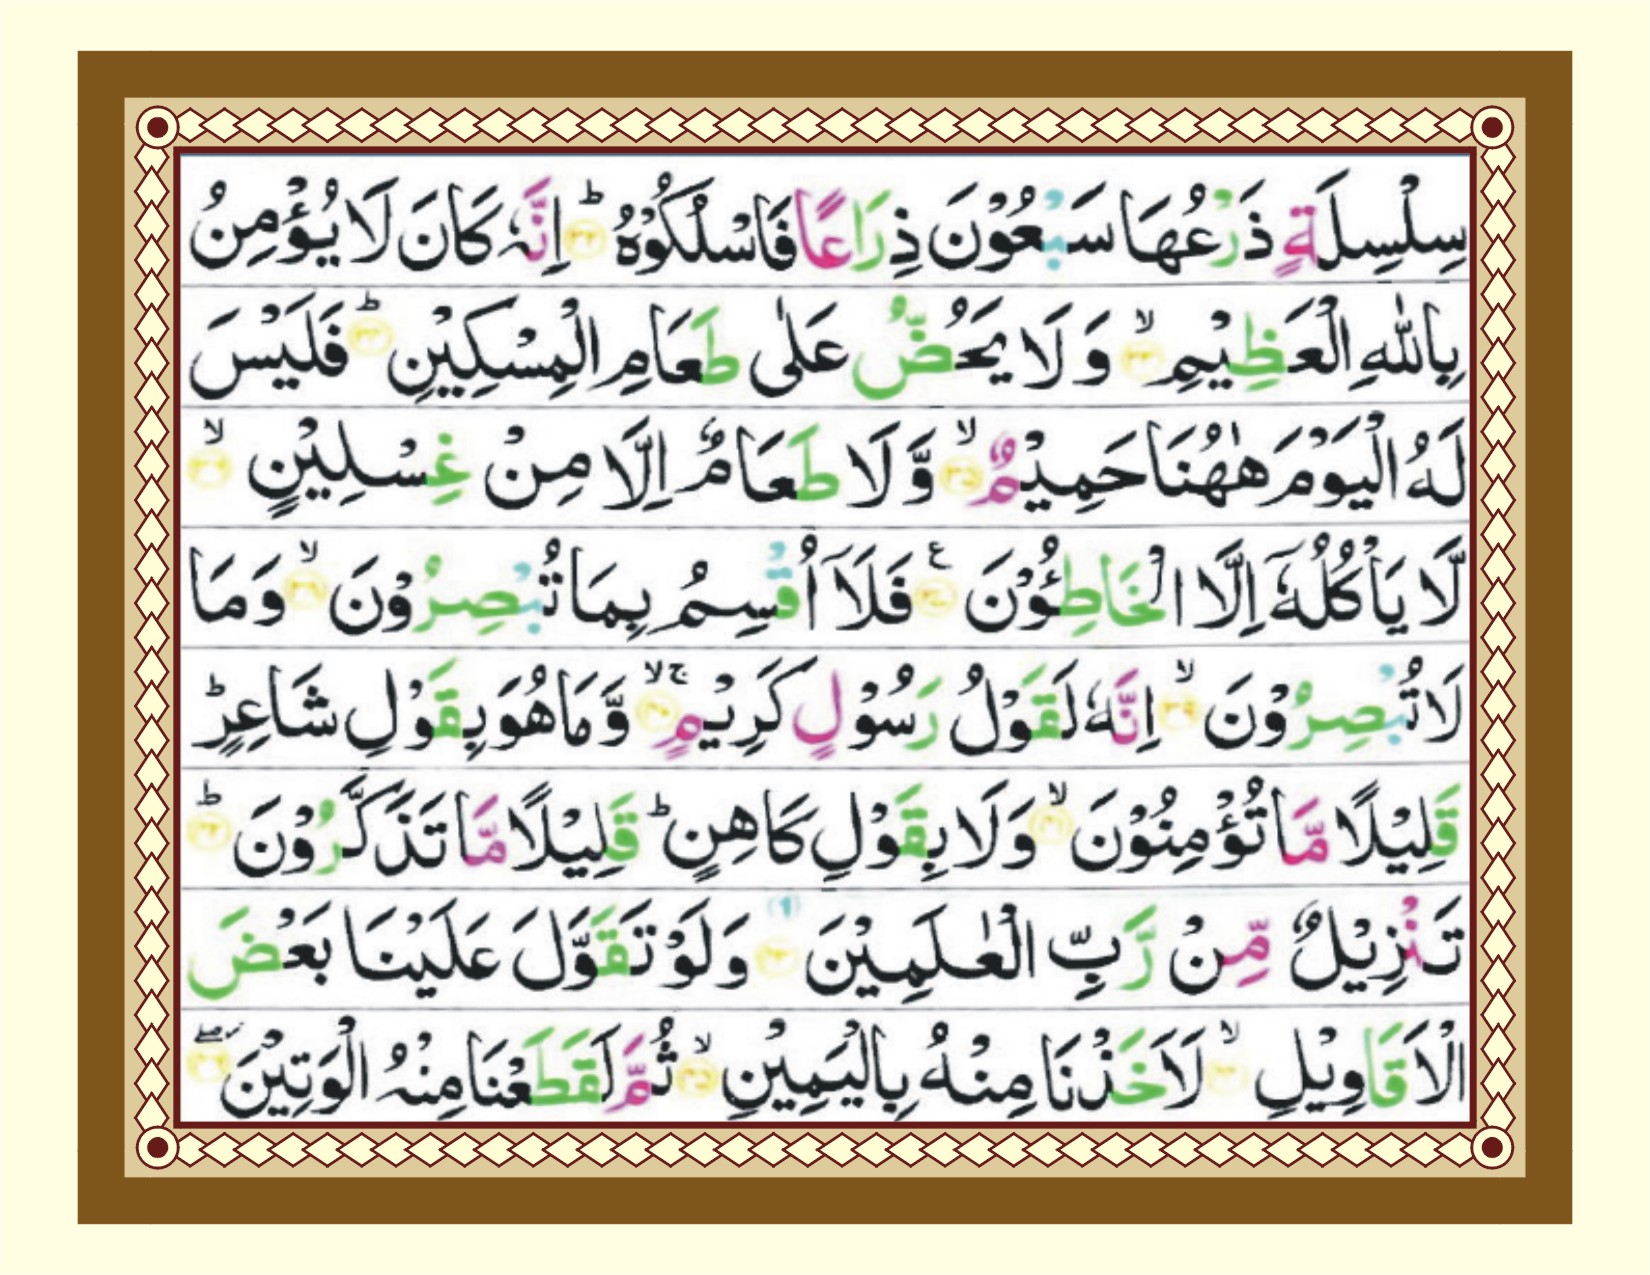 سِلْسِلَةٍ ذَرْعُهَا سَبْعُوْنَ ذِرَاعًا فَاسْلُكُوْهُ ؕ﴿۳۲﴾ اِنَّهٗ كَانَ لَا يُؤْمِنُ
بِاللّٰهِ الْعَظِيْمِ ۙ﴿۳۳﴾ وَ لَا يَحُضُّ عَلٰى طَعَامِ الْمِسْكِيْنِ ؕ﴿۳۴﴾ فَلَيْسَ
لَهُ الْيَوْمَ هٰهُنَا حَمِيْمٌ ۙ﴿۳۵﴾ وَّ لَا طَعَامٌ اِلَّا مِنْ غِسْلِيْنٍ ۙ﴿۳۶﴾
لَّا يَاْكُلُهٗۤ اِلَّا الْخَاطِئُوْنَ ﴿۳۷﴾ ع فَلَاۤ اُقْسِمُ بِمَا تُبْصِرُوْنَ ۙ﴿۳۸﴾ وَ مَا
لَا تُبْصِرُوْنَ ۙ﴿۳۹﴾ اِنَّهٗ لَقَوْلُ رَسُوْلٍ كَرِيْمٍ ۚۙ﴿۴۰﴾ وَّ مَا هُوَ بِقَوْلِ شَاعِرٍ ؕ
قَلِيْلًا مَّا تُؤْمِنُوْنَ ۙ﴿۴۱﴾ وَ لَا بِقَوْلِ كَاهِنٍ ؕ قَلِيْلًا مَّا تَذَكَّرُوْنَ ؕ﴿۴۲﴾
تَنْزِيْلٌ مِّنْ رَّبِّ الْعٰلَمِيْنَ ﴿۴۳﴾ وَ لَوْ تَقَوَّلَ عَلَيْنَا بَعْضَ
الْاَقَاوِيْلِ ۙ﴿۴۴﴾ لَاَخَذْنَا مِنْهُ بِالْيَمِيْنِ ۙ﴿۴۵﴾ ثُمَّ لَقَطَعْنَا مِنْهُ الْوَتِيْنَ ۖ﴿۴۶﴾